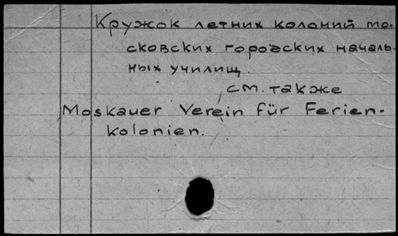 Кружок летних колоний мо-
сковских городских началь-
ных училищ.
см. также
Moskauer Verein für Ferien-
kolonien.